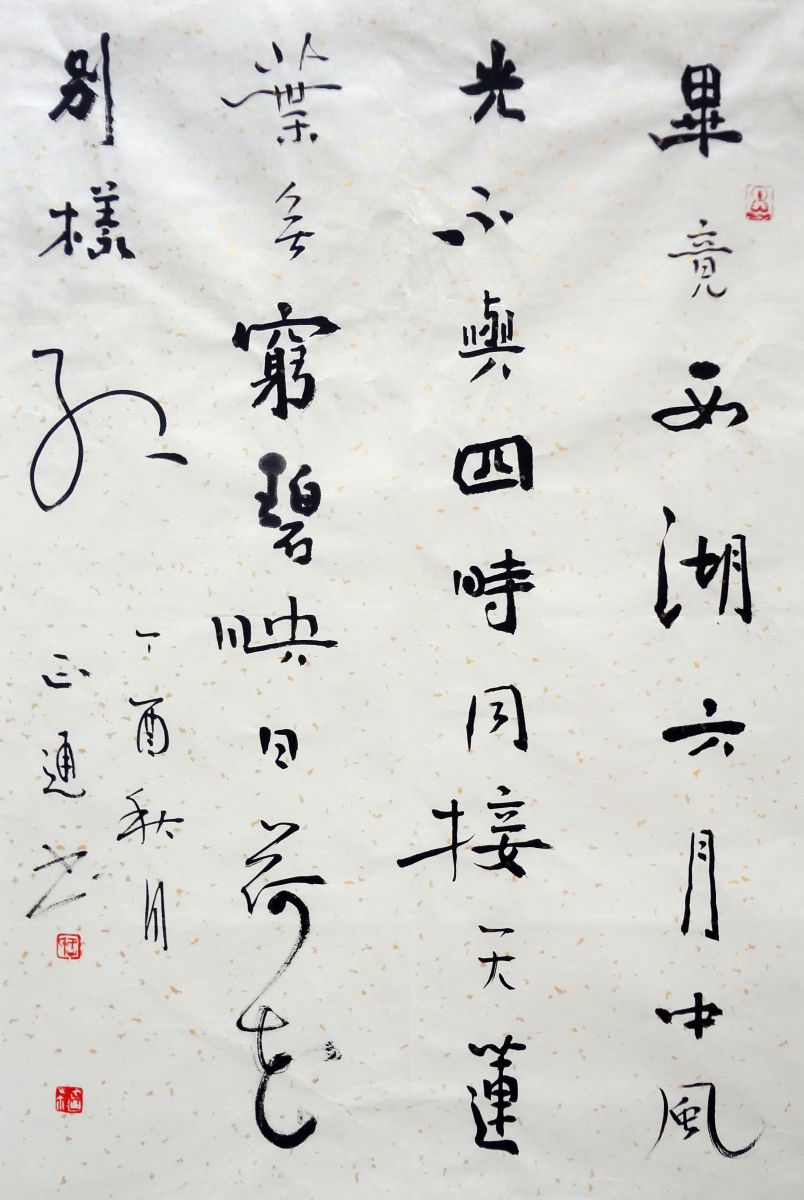 畢竟西湖六月中風
光不與四時同接天蓮
葉無窮碧映日荷花
別樣紅
丁酉秋月
正通書